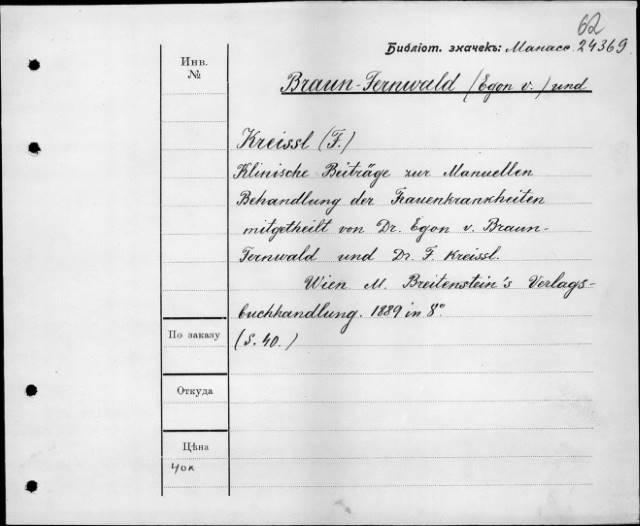 62
Библіот. значекъ: Манасс. 24369
Инв.
№
Braun-Fernwald (Egon v.) und
Kreissl (F.)
Klinische Beiträge zur Manuellen
Behandlung der Frauenkrankheiten
mitgetheilt von Dr. Egon v. Braun-
Fernwald und Dr. F. Kreissl.
Wien M. Breitenstein's Verlags-
buchhandlung. 1889 in 8°
По заказу
(S. 40.)
Откуда
Цѣна
40к